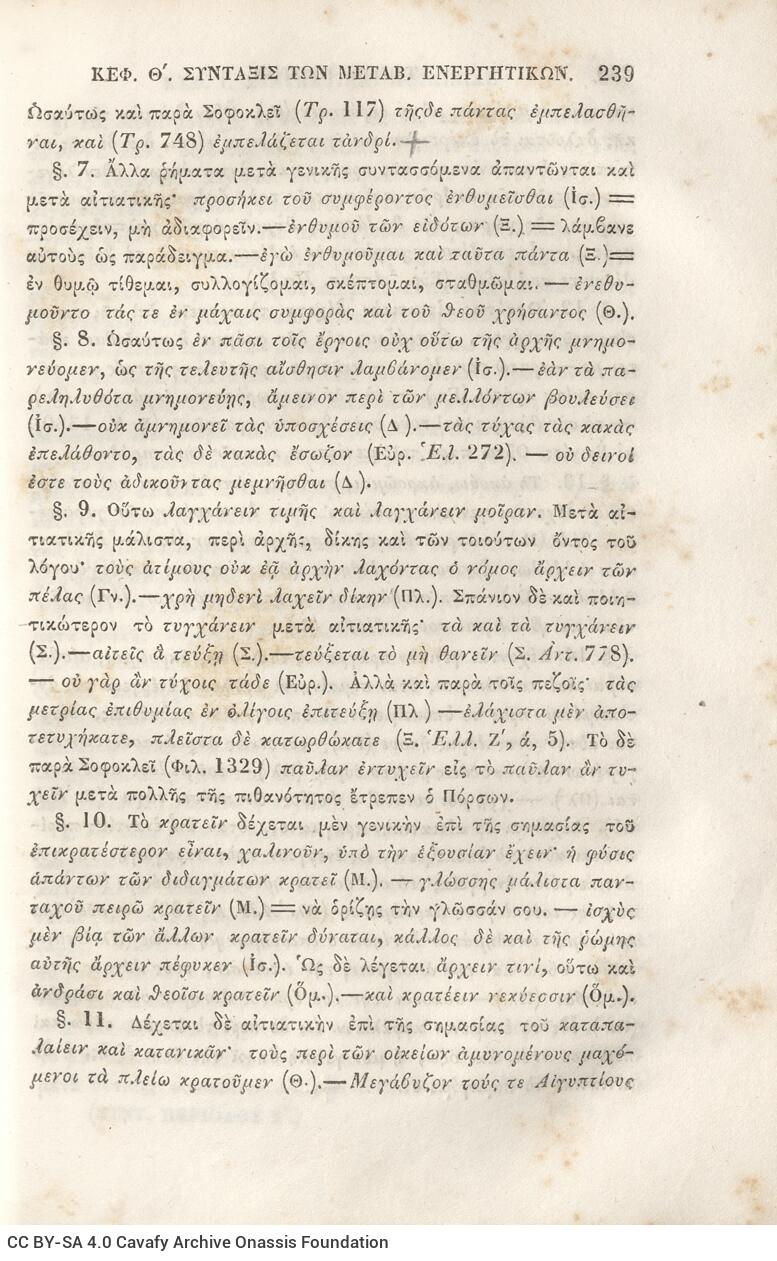 ΚΕΦ. Θʹ. ΣΥΝΤΑΞΙΣ ΤΩΝ ΜΕΤΑΒ. ΕΝΕΡΓΗΤΙΚΩΝ. 239
Ὡσαύτως καὶ παρὰ Σοφοκλεῖ (Τρ. 117) τῆςδε πάντας ἐμπελασθῆ-
ναι, καὶ (Τρ. 748) ἐμπελάζεται τἀνδρί.
§. 7. Ἄλλα ῥήματα μετὰ γενικῆς συντασσόμενα ἀπαντῶνται καὶ
μετὰ αἰτιατικῆς· προσήκει τοῦ συμφέροντος ἐνθυμεῖσθαι (Ἰσ.) =
προσέχειν, μὴ ἀδιαφορεῖν.—ἐνθυμοῦ τῶν εἰδότων (Ξ.) = λάμβανε
αὐτοὺς ὡς παράδειγμα.—ἐγὼ ἐνθυμοῦμαι καὶ ταῦτα πάντα (Ξ.)=
ἐν θυμῷ τίθεμαι, συλλογίζομαι, σκέπτομαι, σταθμῶμαι. — ἐνεθυ-
μοῦντο τάς τε ἐν μάχαις συμφορὰς καὶ τοῦ θεοῦ χρήσαντος (Θ.).
§. 8. Ὡσαύτως ἐν πᾶσι τοῖς ἔργοις οὐχ οὕτω τῆς ἀρχῆς μνημο-
νεύομεν, ὡς τῆς τελευτῆς αἴσθησιν λαμβάνομεν (Ἰσ.).—ἐὰν τὰ πα-
ρεληλυθότα μνημονεύῃς, ἄμεινον περὶ τῶν μελλόντων βουλεύσει
(Ἰσ.).—οὐκ ἀμνημονεῖ τὰς ὑποσχέσεις (Δ ).—τὰς τύχας τὰς κακὰς
ἐπελάθοντο, τὰς δὲ κακὰς ἔσωζον (Εὐρ. Ἑλ. 272). — οὐ δεινοί
ἐστε τοὺς ἀδικοῦντας μεμνῆσθαι (Δ ).
§. 9. Οὕτω λαγχάνειν τιμῆς καὶ λαγχάνειν μοῖραν. Μετὰ αἰ-
τιατικῆς μάλιστα, περὶ ἀρχῆς, δίκης καὶ τῶν τοιούτων ὄντος τοῦ
λόγου· τοὺς ἀτίμους οὐκ ἐᾷ ἀρχὴν λαχόντας ὁ νόμος ἄρχειν τῶν
πέλας (Γν.).—χρὴ μηδενὶ λαχεῖν δίκην (Πλ.). Σπάνιον δὲ καὶ ποιη-
τικώτερον τὸ τυγχάνειν μετὰ αἰτιατικῆς· τὰ καὶ τὰ τυγχάνειν
(Σ.).—αἰτεῖς ἃ τεύξῃ (Σ.).—τεύξεται τὸ μὴ θανεῖν (Σ. Ἀντ. 778).
— οὐ γὰρ ἂν τύχοις τάδε (Εὐρ.). Ἀλλὰ καὶ παρὰ τοῖς πεζοῖς· τὰς
μετρίας ἐπιθυμίας ἐν ὀλίγοις ἐπιτεύξῃ (Πλ ) —ἐλάχιστα μὲν ἀπο-
τετυχήκατε, πλεῖστα δὲ κατωρθώκατε (Ξ. Ἑλλ. Ζʹ, ά, 5). Τὸ δὲ
παρὰ Σοφοκλεῖ (Φιλ. 1329) παῦλαν ἐντυχεῖν εἰς τὸ παῦλαν ἂν τυ-
χεῖν μετὰ πολλῆς τῆς πιθανότητος ἔτρεπεν ὁ Πόρσων.
§. 10. Τὸ κρατεῖν δέχεται μὲν γενικὴν ἐπὶ τῆς σημασίας τοῦ
ἐπικρατέστερον εἶναι, χαλινοῦν, ὑπὸ τὴν ἐξουσίαν ἔχειν· ἡ φύσις
ἁπάντων τῶν διδαγμάτων κρατεῖ (Μ.). — γλώσσης μάλιστα παν-
ταχοῦ πειρῶ κρατεῖν (Μ.) = νὰ ὁρίζῃς τὴν γλῶσσάν σου. — ἰσχὺς
μὲν βίᾳ τῶν ἄλλων κρατεῖν δύναται, κάλλος δὲ καὶ τῆς ῥώμης
αὐτῆς ἄρχειν πέφυκεν (Ἰσ.). Ὡς δὲ λέγεται ἄρχειν τινί, οὕτω καὶ
ἀνδράσι καὶ θεοῖσι κρατεῖν (Ὅμ.).—καὶ κρατέειν νεκύεσσιν (Ὅμ.).
§. 11. Δέχεται δὲ αἰτιατικὴν ἐπὶ τῆς σημασίας τοῦ καταπα-
λαίειν καὶ κατανικᾶν· τοὺς περὶ τῶν οἰκείων ἀμυνομένους μαχό-
μενοι τὰ πλείω κρατοῦμεν (Θ.).—Μεγάβυζον τούς τε Αἰγυπτίους
CC BY-SA 4.0 Cavafy Archive Onassis Foundation